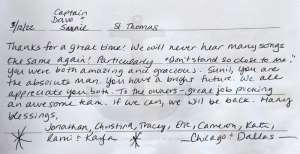 Captain
3/12/22 Dave + Sunnie St Thomas
Thanks for a great time! We will never hear many songs
the same again! Particularly "don't stand so close to me."
You were both amazing and gracious. Sunil, you are
the absolute man. You have a bright future. We all
appreciate you both. To the owners - great job picking
an awesome team. If we can, we will be back. Many
blessings,
Jonathan, Christina, Tracey, Eric, Cameron, Kate,
Rami + Kayla - Chicago + Dallas -